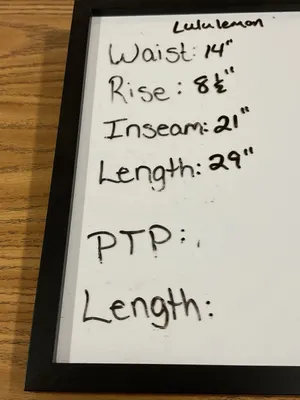 Lululemon
Waist: 14"
Rise: 8½"
Inseam: 21"
Length: 29"
PTP:
Length: